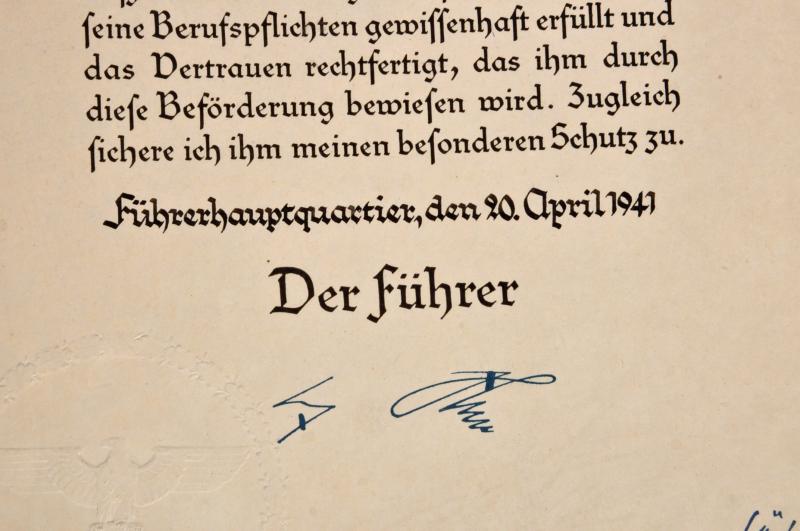 seine Berufspflichten gewissenhaft erfüllt und
das Vertrauen rechtfertigt, das ihm durch
diese Beförderung bewiesen wird. Zugleich
sichere ich ihm meinen besonderen Schutz zu.
Führerhauptquartier, den 20. April 1941
Der Führer